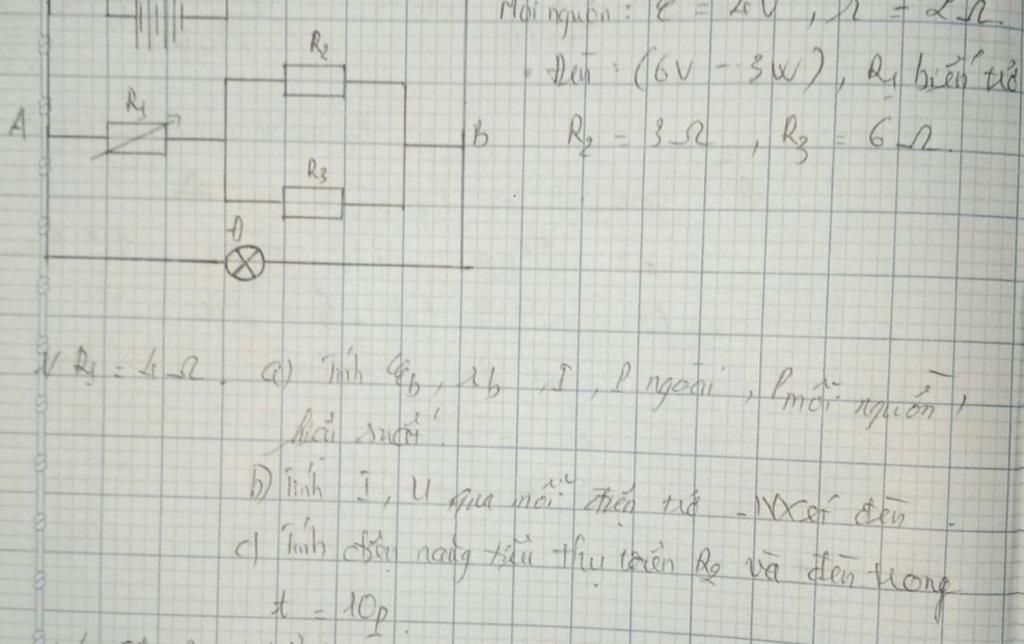 Mỗi nguồn : ξ = 4V , r = 2 Ω.
Đèn : (6V - 3W), R₁ biến trở
R₂ = 3 Ω , R₃ = 6 Ω.
R₂
R₁
A
B
R₃
Đ
R₁ = 4 Ω. a) Tính ξb, rb, I, P ngoài, P mỗi nguồn,
hiệu suất.
b) Tính I, U qua mỗi điện trở - NX đèn.
c) Tính điện năng tiêu thụ trên R₂ và đèn trong
t = 10p.